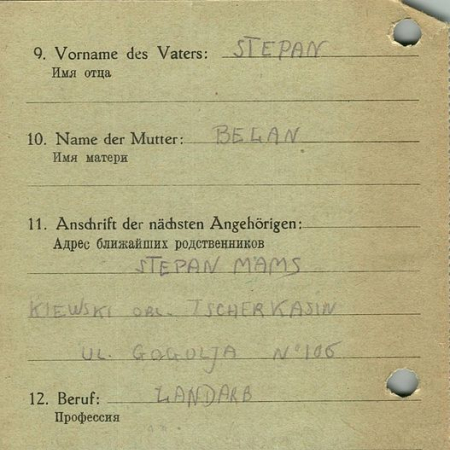 9. Vorname des Vaters: STEPAN
Имя отца
10. Name der Mutter: BELAN
Имя матери
11. Anschrift der nächsten Angehörigen:
Адрес ближайших родственников
STEPAN MAMS
KIEWSKI OBL. TSCHERKASIN
UL. GOGOLJA N°106
12. Beruf: LANDARB
Профессия